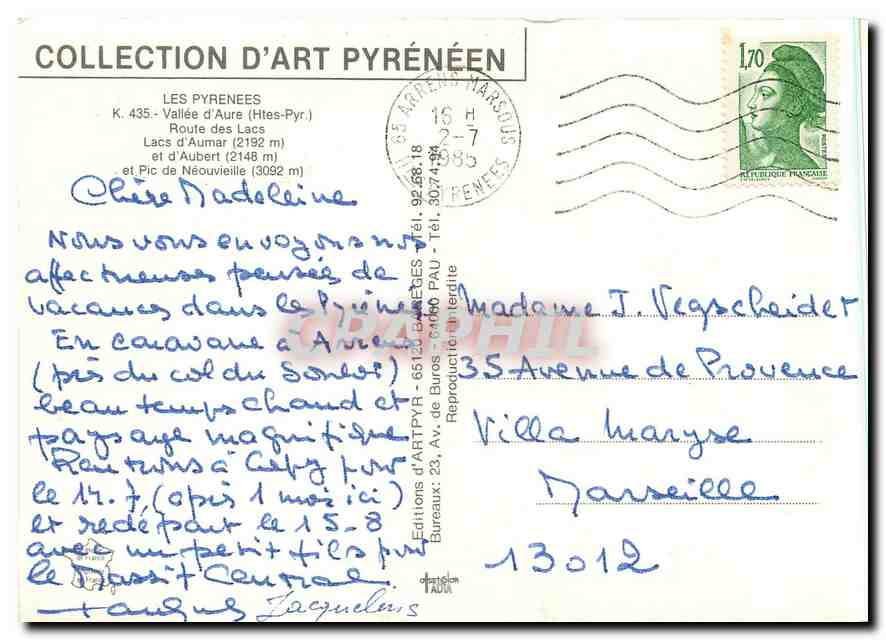 COLLECTION D'ART PYRÉNÉEN
LES PYRENEES
K. 435.- Vallée d'Aure (Htes-Pyr.)
Route des Lacs
Lacs d'Aumar (2192 m)
et d'Aubert (2148 m)
et Pic de Néouvieille (3092 m)
Chère Madeleine
Nous vous envoyons nos
affectueuses pensées de
vacances dans les Pyrénées
En caravane à Arrens
(près du col du Soulor)
beau temps chaud et
paysage magnifique
Rentrons à pour
le 14.7 (après 1 mois ici)
et redépart le 15-8
avec un petit fils pour
le Massif Central
Jacqueline
Editions d'ARTPYR - 65120 BARÈGES - Tél. 92.68.18
Bureaux: 23, Av. de Buros - 64000 PAU - Tél. 30.74.94
Reproduction interdite
65 ARRENS-MARSOUS
16 H
2-7
1985
PYRENEES
1,70
REPUBLIQUE FRANÇAISE
Madame J. Vegscheider
35 Avenue de Provence
Villa Maryse
Marseille
13012
CPAPHIL